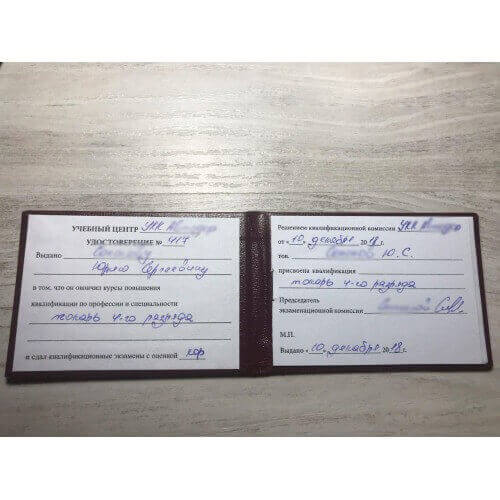 УЧЕБНЫЙ ЦЕНТР УКК
УДОСТОВЕРЕНИЕ № 417
Выдано
Юрию Сергеевичу
в том, что он окончил курсы повышения
квалификации по профессии и специальности
токарь 4-го разряда
и сдал квалификационные экзамены с оценкой хор
Решением квалификационной комиссии УКК
от «10» декабря 2018 г.
тов. Ю.С.
присвоена квалификация
токарь 4-го разряда
Председатель
экзаменационной комиссии
М.П.
Выдано «10» декабря 2018 г.